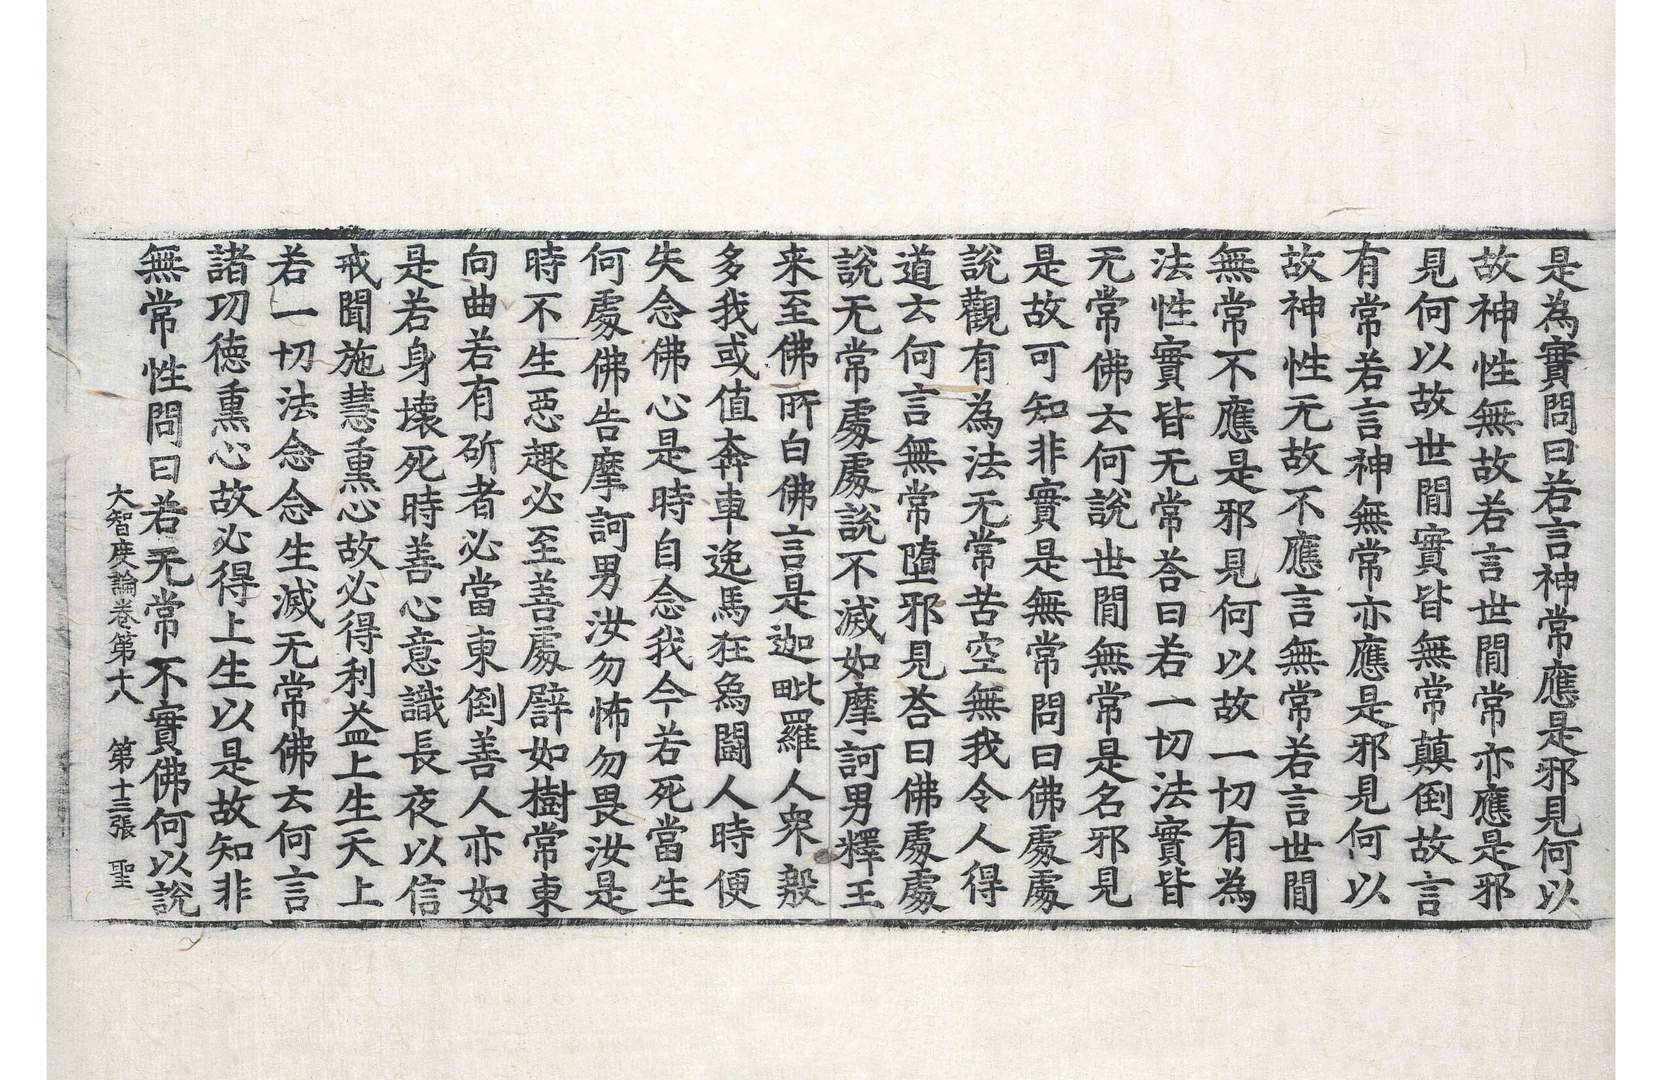 是為實問曰若言神常應是邪見何以
故神性無故若言世閒常亦應是邪
見何以故世閒實皆無常顛倒故言
有常若言神無常亦應是邪見何以
故神性无故不應言無常若言世閒
無常不應是邪見何以故一切有為
法性實皆无常荅曰若一切法實皆
无常佛云何說世閒無常是名邪見
是故可知非實是無常問曰佛處處
說觀有為法无常苦空無我令人得
道云何言無常墮邪見荅曰佛處處
說无常處處說不滅如摩訶男釋王
来至佛所白佛言是迦毗羅人衆殷
多我或值奔車逸馬狂鳥鬪人時便
失念佛心是時自念我今若死當生
何處佛告摩訶男汝勿怖勿畏汝是
時不生惡趣必至善處譬如樹常東
向曲若有斫者必當東倒善人亦如
是若身壞死時善心意識長夜以信
戒聞施慧熏心故必得利益上生天上
若一切法念念生滅无常佛云何言
諸功德熏心故必得上生以是故知非
無常性問曰若无常不實佛何以說
大智度論卷第十八 第十三張 聖